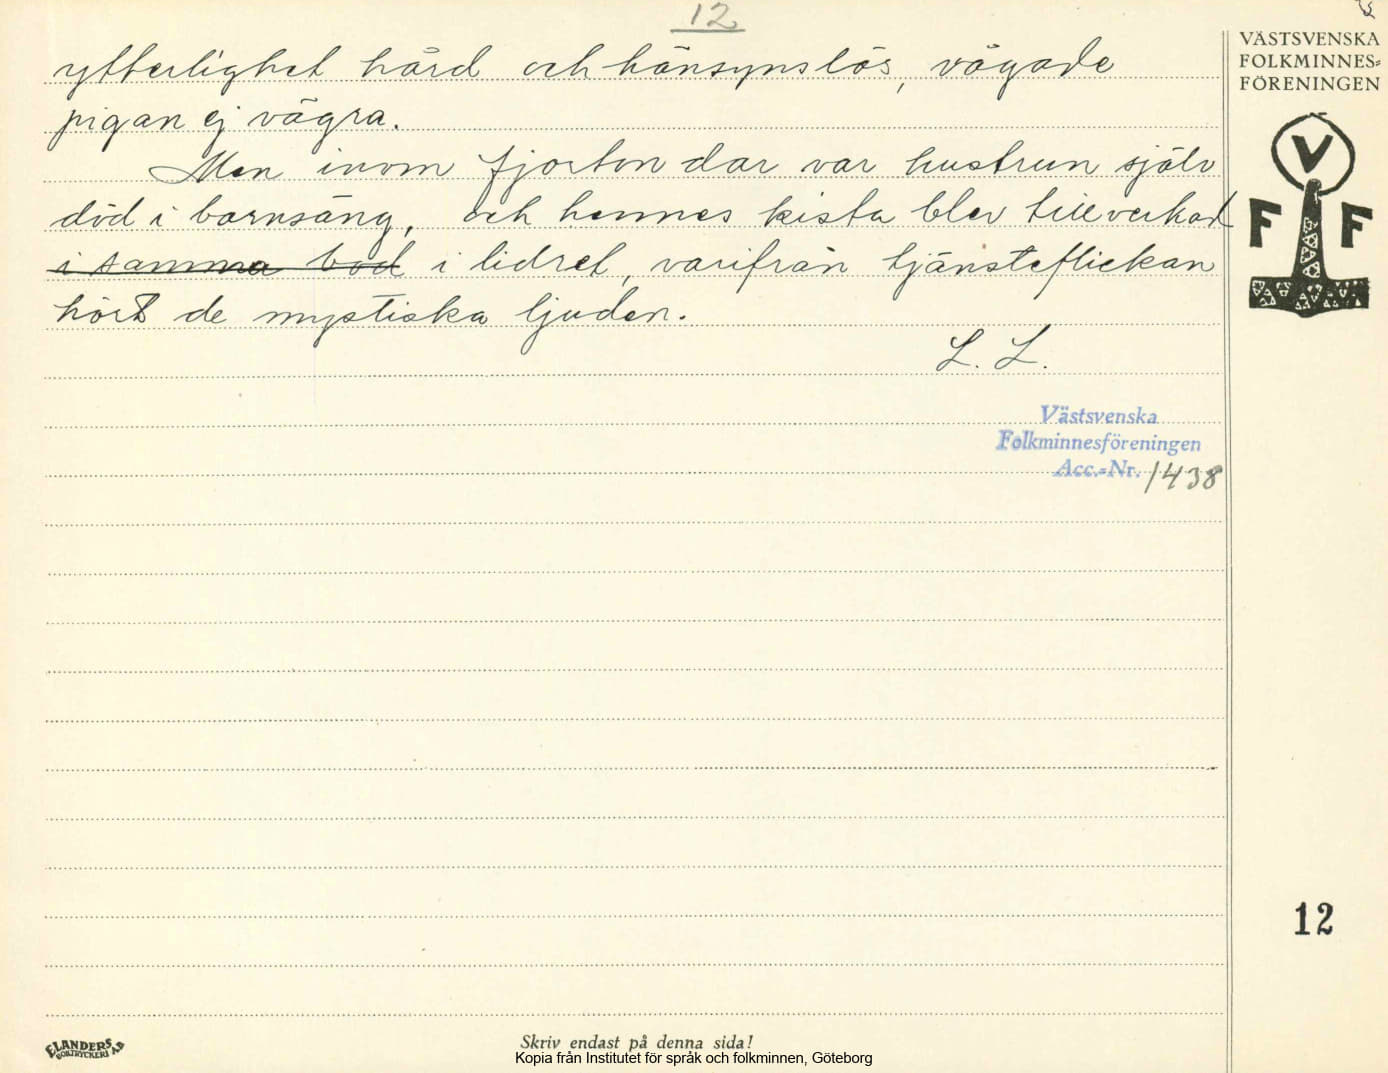 12
VÄSTSVENSKA
FOLKMINNES=
FÖRENINGEN
ytterlighet hård och hänsynslös, vågade
pigan ej vägra.
Men inom fjorton dar var hustrun själv
död i barnsäng, och hennes kista blev tillverkad
i samma bod i lidret, varifrån tjänsteflickan
hört de mystiska ljuden.
L. L.
V
F F
Västsvenska
Folkminnesföreningen
Acc.=Nr. 1438
12
ELANDERS
BOKTRYCKERI AB
Skriv endast på denna sida!
Kopia från Institutet för språk och folkminnen, Göteborg